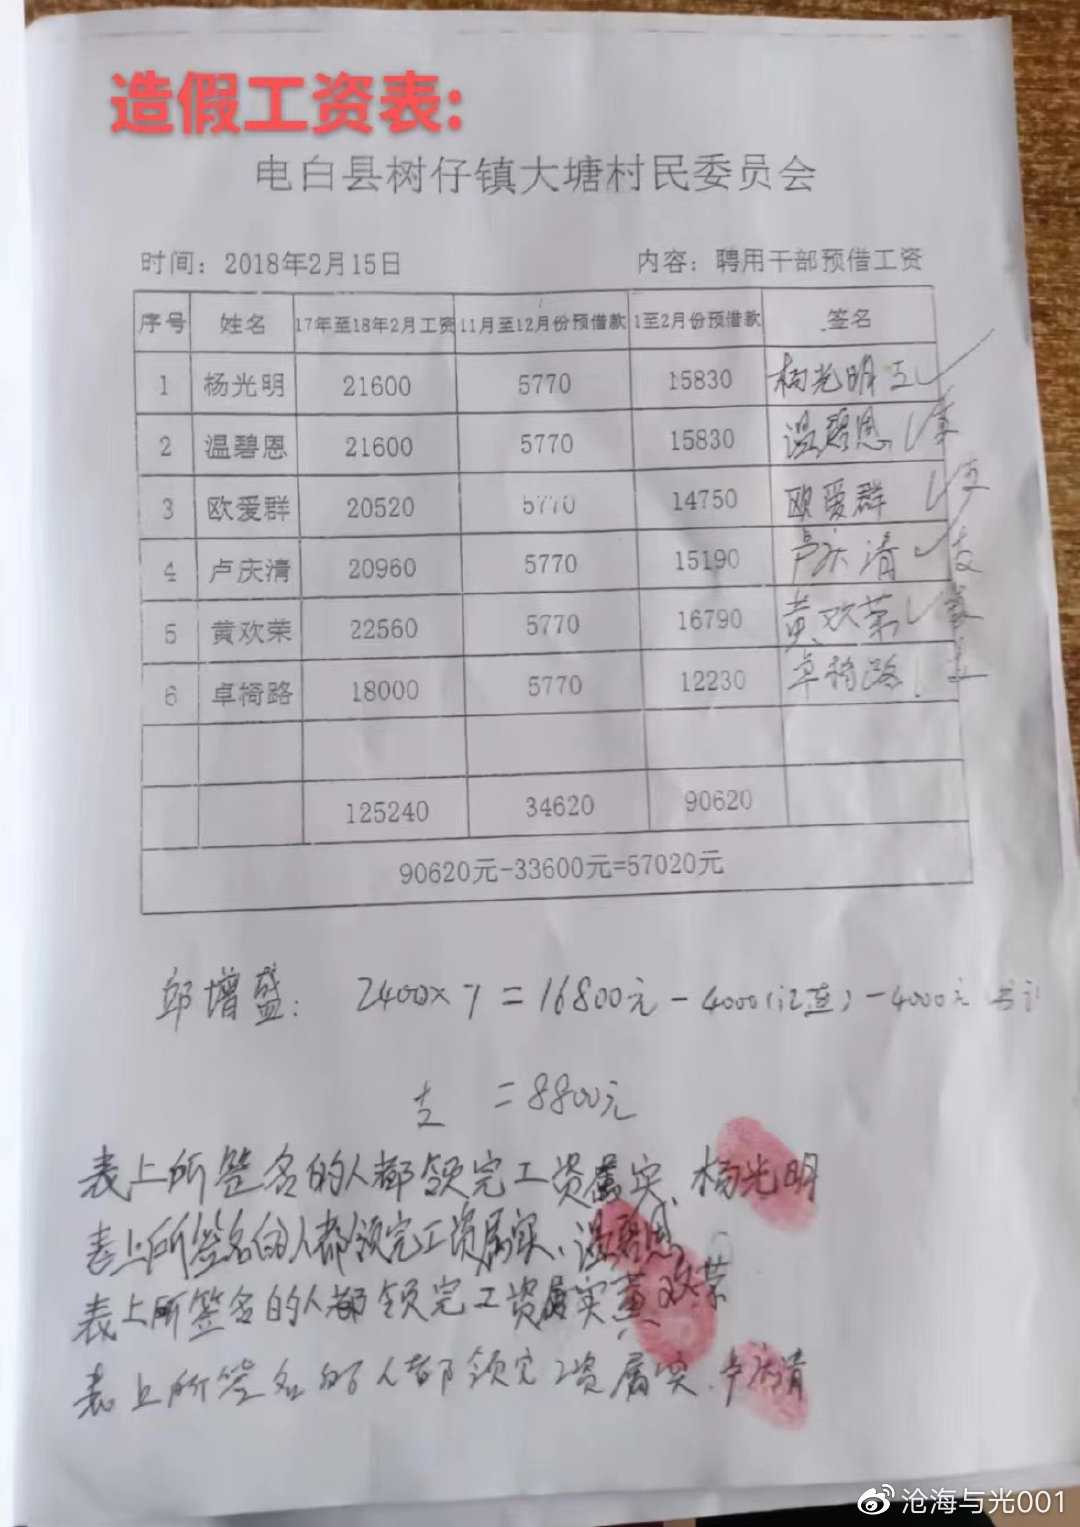 造假工资表:
电白县树仔镇大塘村民委员会
时间：2018年2月15日 内容：聘用干部预借工资
序号 姓名 17年至18年2月工资 11月至12月份预借款 1至2月份预借款 签名
1 杨光明 21600 5770 15830 杨光明 支
2 温碧恩 21600 5770 15830 温碧恩
3 欧爱群 20520 5770 14750 欧爱群 支
4 卢庆清 20960 5770 15190 卢庆清 支
5 黄欢荣 22560 5770 16790 黄欢荣
6 卓椅路 18000 5770 12230 卓椅路 支
125240 34620 90620
90620元-33600元=57020元
邱增盛: 2400×7=16800元-4000 -4000元
支 =8800元
表上所签名的人都领完工资属实、杨光明
表上所签名的人都领完工资属实、温碧恩
表上所签名的人都领完工资属实黄欢荣
表上所签名的人都领完工资属实.卢庆清
沧海与光001